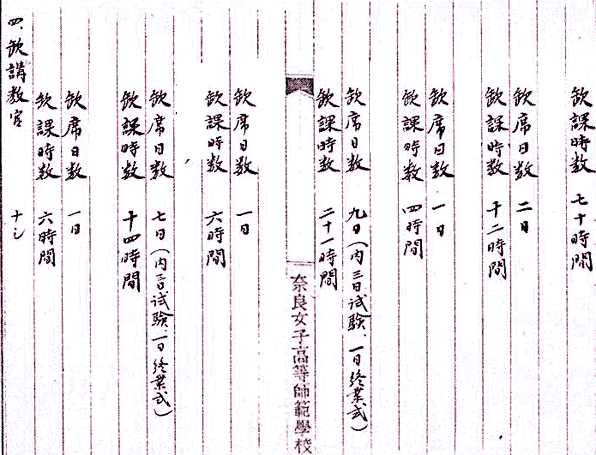 欽課時数 七十時間
欽席日数 二日
欽課時数 十二時間
欽席日数 一日
欽課時数 四時間
欽席日数 九日(内三日試験、一日終業式)
欽課時数 二十一時間
奈良女子高等師範學校
欽席日数 一日
欽課時数 六時間
欽席日数 七日(内三日試験、一日終業式)
欽課時数 十四時間
欽席日数 一日
欽課時数 六時間
四、欽講教官